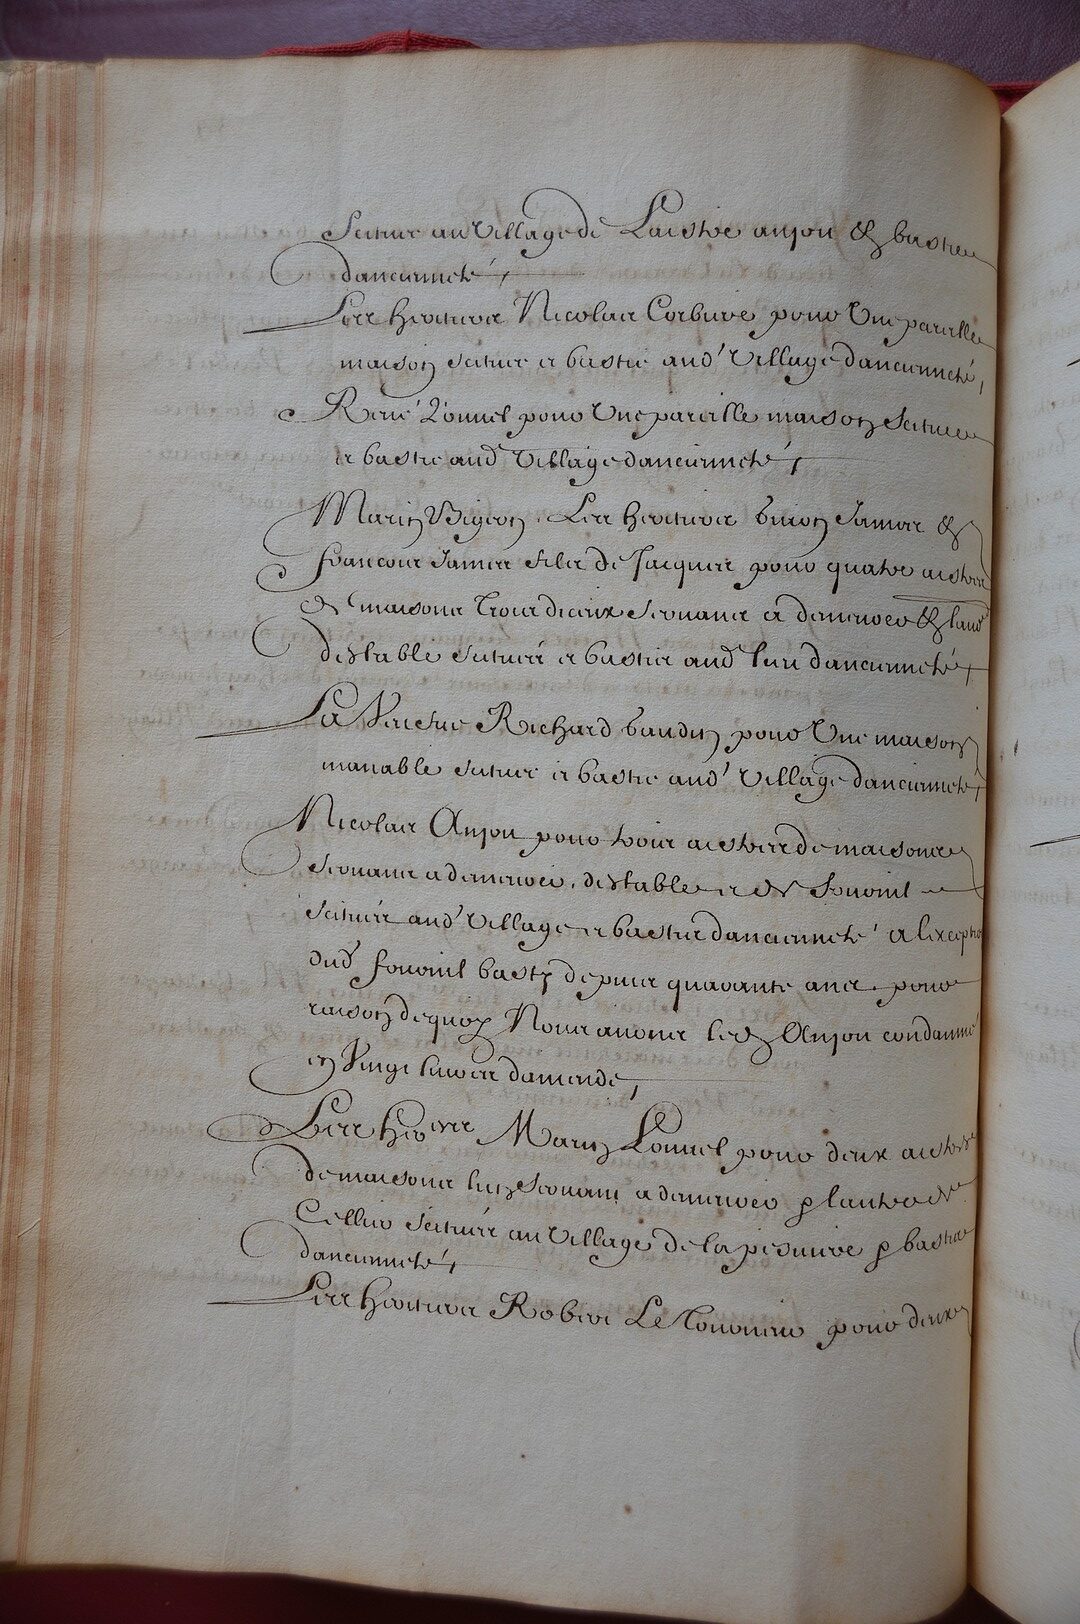 Scituée au Village de Laistre anjou & bastie
dancienneté,
Les heritiers Nicolas Corbiere pour Une pareille
maison scituée et bastie aud' Village dancienneté,
René Lonnel pour Une pareille maison Scituée
et bastie aud' Village dancienneté,
Marin Bigeon. Les heritiers Simon Jamin &
francois Jamin fils de Jacques pour quatre aistres
de maisons trois diceux servans a demeurer & lautre
destable scitués et basties aud' lieu dancienneté,
La Veufue Richard baudin pour Une maison
manable scituée et bastie aud' Village dancienneté,
Nicolas Anjou pour trois aistres de maisons
servans a demeurer, destable et de fourni
scitués aud' Village et basties dancienneté a lexceptio
dud' fourni basty depuis quarante ans, pour
raison dequoy Nous avons led' Anjou condamné
en Vingt livres damende,
Les heriers Marin Lonnel pour deux aistres
de maisons lun servant a demeurer & lautre de
Cellier scitués au Village de la & basties
dancienneté,
Les heritiers Robert Le Tourneur pour deux